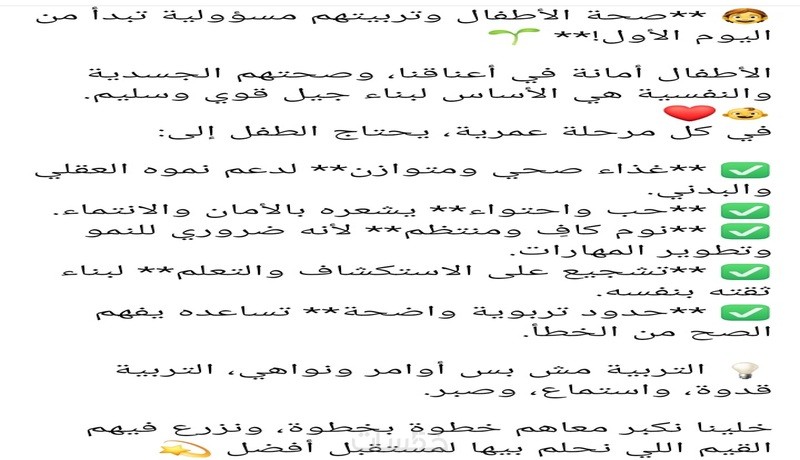 👧 **صحة الأطفال وتربيتهم مسؤولية تبدأ من
اليوم الأول!** 🌱
الأطفال أمانة في أعناقنا، وصحتهم الجسدية
والنفسية هي الأساس لبناء جيل قوي وسليم.
👶❤️
في كل مرحلة عمرية، يحتاج الطفل إلى:
✅ **غذاء صحي ومتوازن** لدعم نموه العقلي
والبدني.
✅ **حب واحتواء** يشعره بالأمان والانتماء.
✅ **نوم كافٍ ومنتظم** لأنه ضروري للنمو
وتطوير المهارات.
✅ **تشجيع على الاستكشاف والتعلم** لبناء
ثقته بنفسه.
✅ **حدود تربوية واضحة** تساعده يفهم
الصح من الخطأ.
💡 التربية مش بس أوامر ونواهي، التربية
قدوة، واستماع، وصبر.
خلينا نكبر معاهم خطوة بخطوة، ونزرع فيهم
القيم اللي نحلم بيها لمستقبل أفضل 💫
خمسات